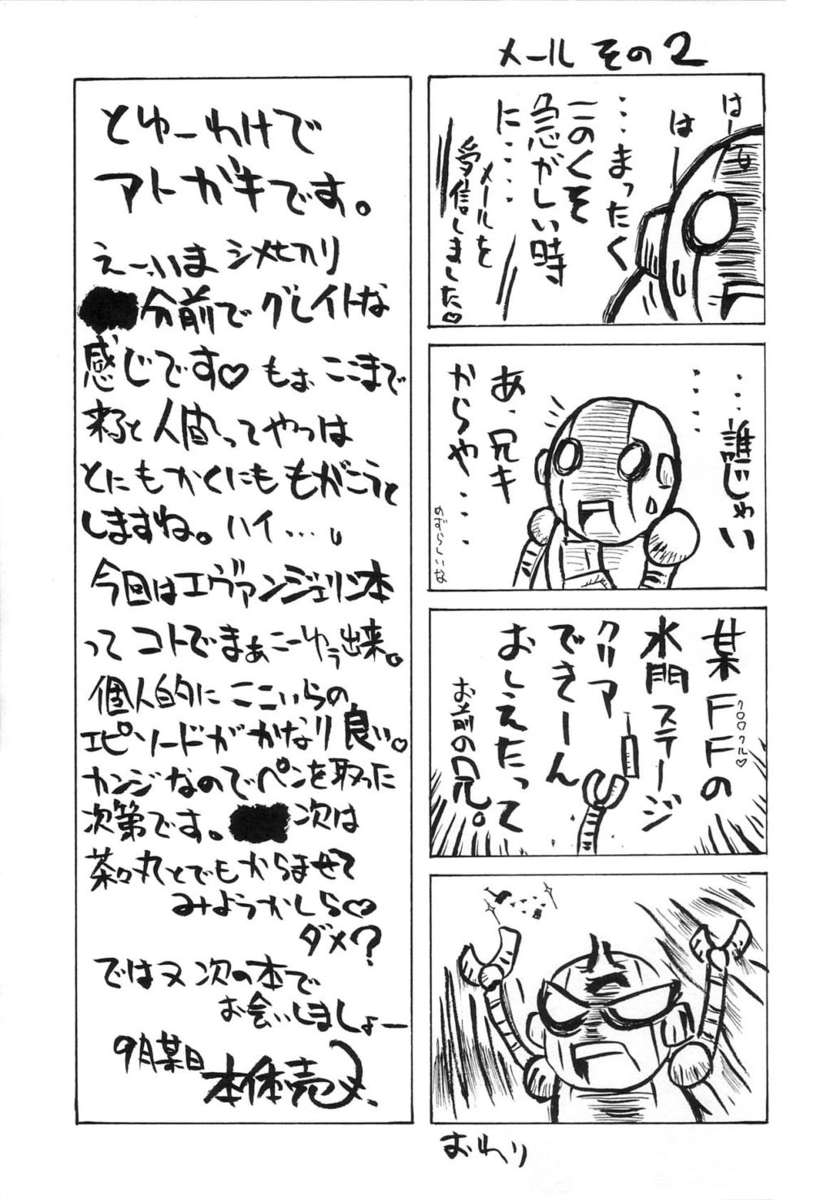 メール その2
はー
はー
・・・まったく
このくそ
急がしい時
に・・・・
メールを
受信しました♡
・・・誰じゃい
・・・・
あ、兄キ
からや・・・
めずらしいな
某FFの
クロウクル♡
水門ステージ
クリア
できーん
おしえたって
お前の兄。
おわり
とゆーわけで
アトガキです。
えー、いま シメ切り
分前で グレイトな
感じです♡ もぉ ここまで
来ると 人間ってやつは
とにもかくにも もがこうと
しますね。ハイ…。
今回はエヴァンジェリン本
って コトでまぁこーゆぅ出来。
個人的に ここいらの
エピソードが かなり 良い♡
カンジなのでペンを取った
次第です。 次は
茶々丸とでもからませて
みようかしら♡
ダメ?
ではヌ 次の本で
お会いしましょー
9月某日
本体売